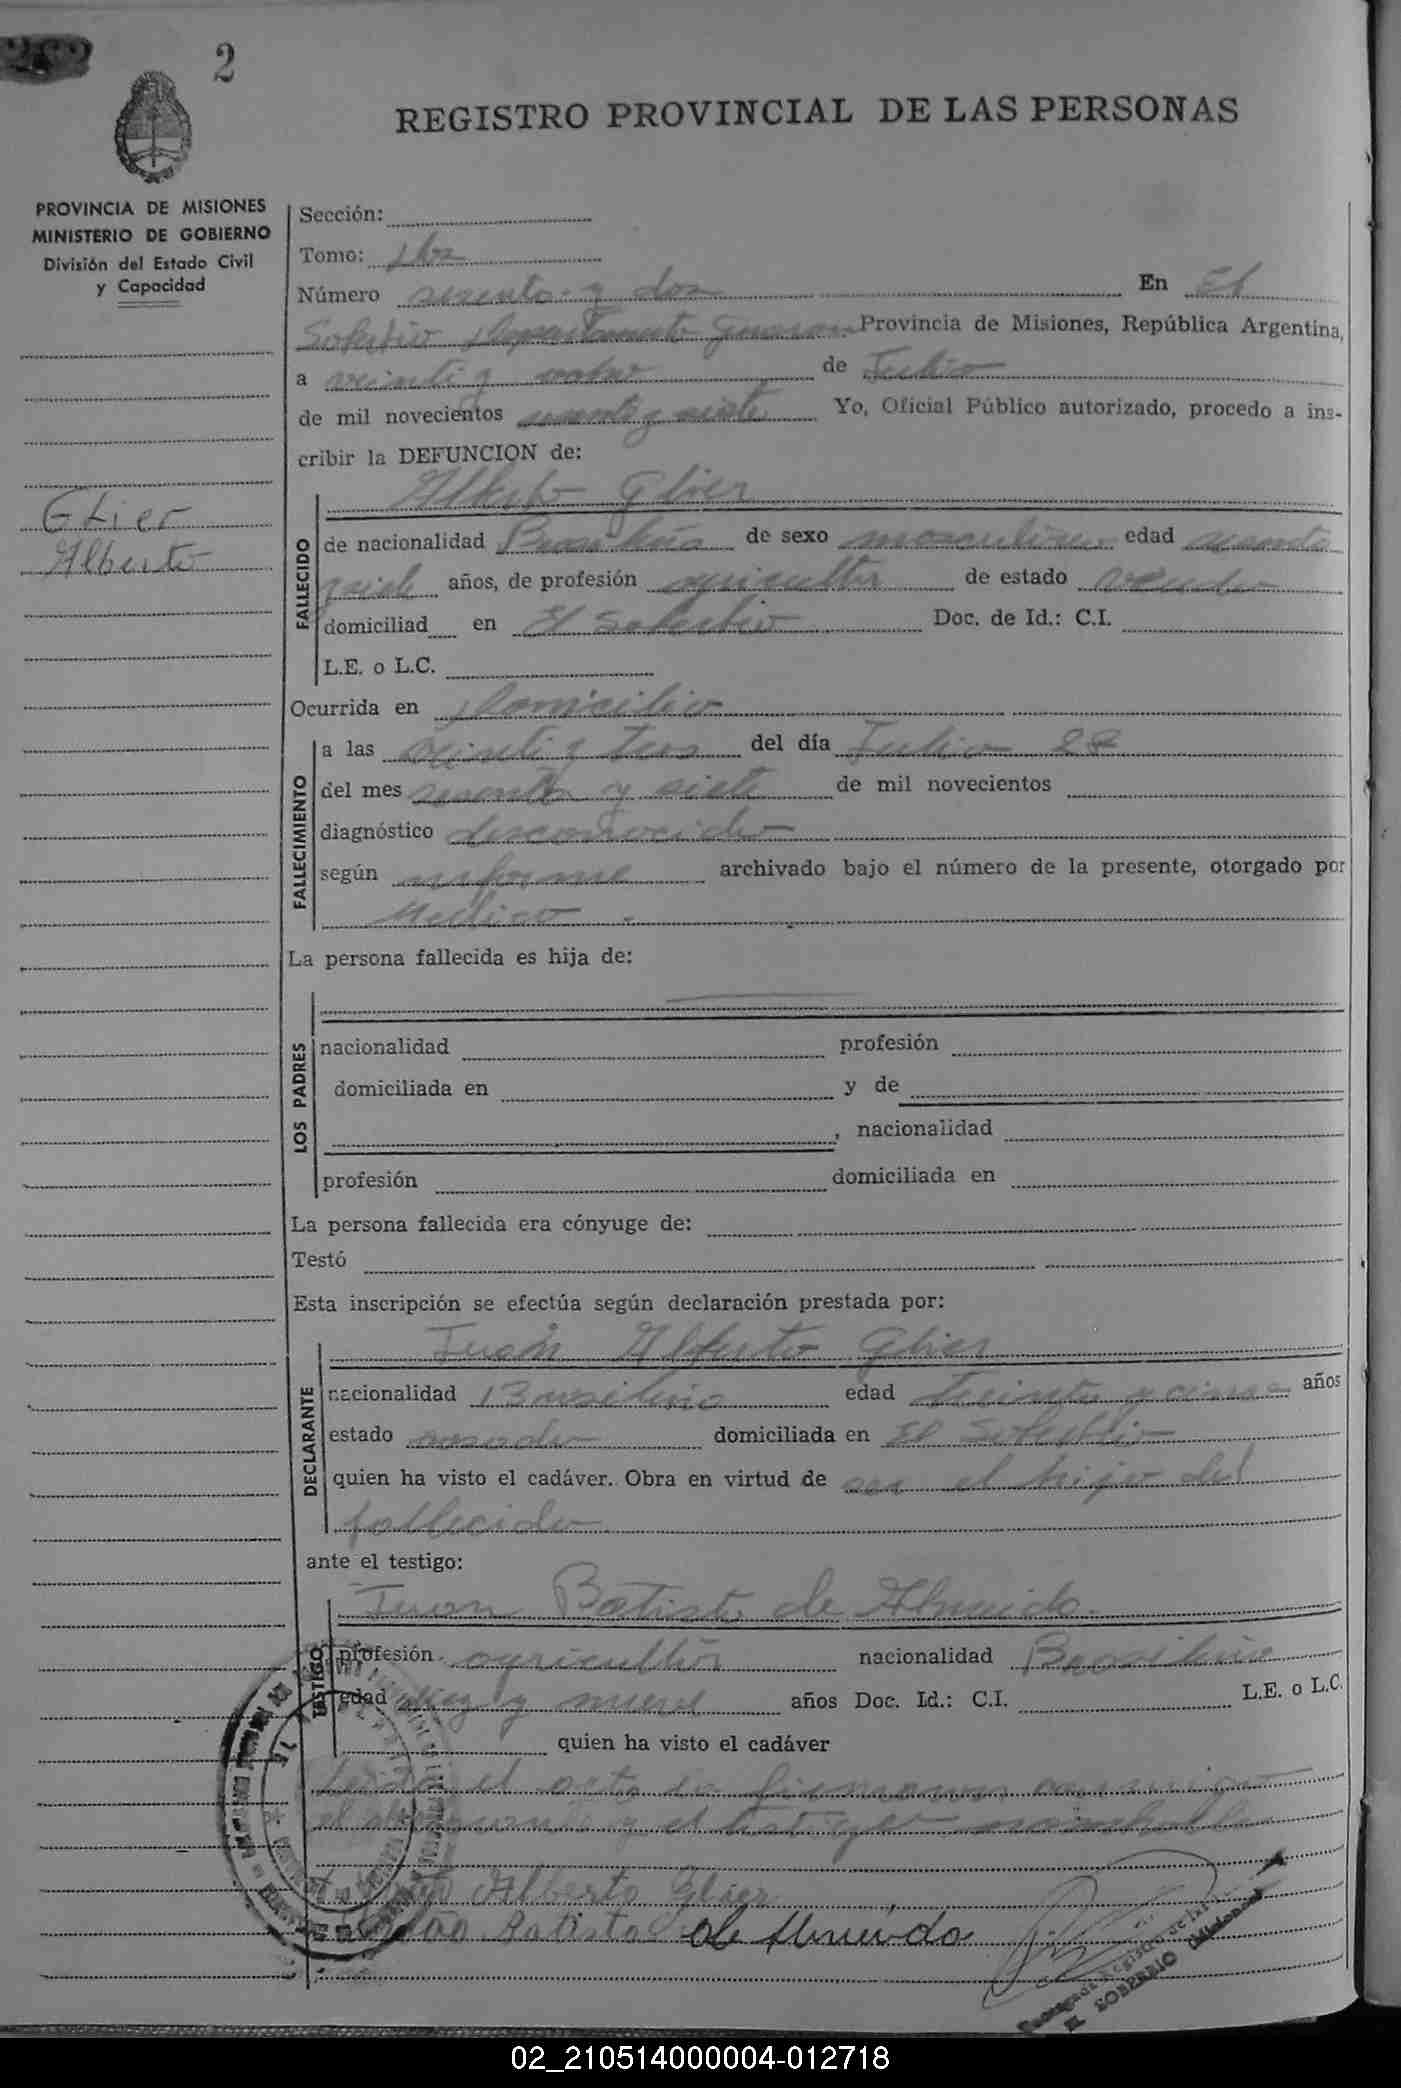 2
REGISTRO PROVINCIAL DE LAS PERSONAS
PROVINCIA DE MISIONES
MINISTERIO DE GOBIERNO
División del Estado Civil
y Capacidad
Glier
Alberto
Sección:
Tomo: 1ro
Número sesenta y dos En El
Soberbio Departamento Guarani Provincia de Misiones, República Argentina,
a veinti y ocho de Julio
de mil novecientos sesenta y siete Yo, Oficial Público autorizado, procedo a ins-
cribir la DEFUNCION de:
Alberto Glier
FALLECIDO
de nacionalidad Brasileño de sexo masculino edad sesenta
y siete años, de profesión agricultor de estado viudo
domiciliad en El Soberbio Doc. de Id.: C.I.
L.E. o L.C.
Ocurrida en domicilio
FALLECIMIENTO
a las veinti y tres del día Julio
del mes sesenta y siete de mil novecientos
diagnóstico desconocido
según informe archivado bajo el número de la presente, otorgado por
Medico
La persona fallecida es hija de:
LOS PADRES
nacionalidad profesión
domiciliada en y de
, nacionalidad
profesión domiciliada en
La persona fallecida era cónyuge de:
Testó
Esta inscripción se efectúa según declaración prestada por:
Juan Alberto Glier
DECLARANTE
nacionalidad Brasileño edad treinta y cinco años
estado casado domiciliada en El Soberbio
quien ha visto el cadáver. Obra en virtud de ser el hijo del
fallecido
ante el testigo:
Juan Batista de Almeida.
TESTIGO
profesión agricultor nacionalidad Brasileño
edad diez y nueve años Doc. Id.: C.I. L.E. o L.C.
quien ha visto el cadáver
el acta la firmaron conmigo
el declarante y el testigo
Alberto Glier
João Batista de Almeida
EL SOBERBIO (Misiones)
02_210514000004-012718